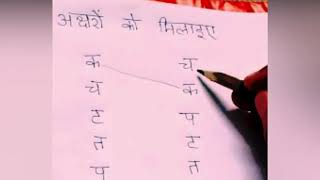 अक्षरों को मिलाइए
क च
च क
ट प
त ट
प त